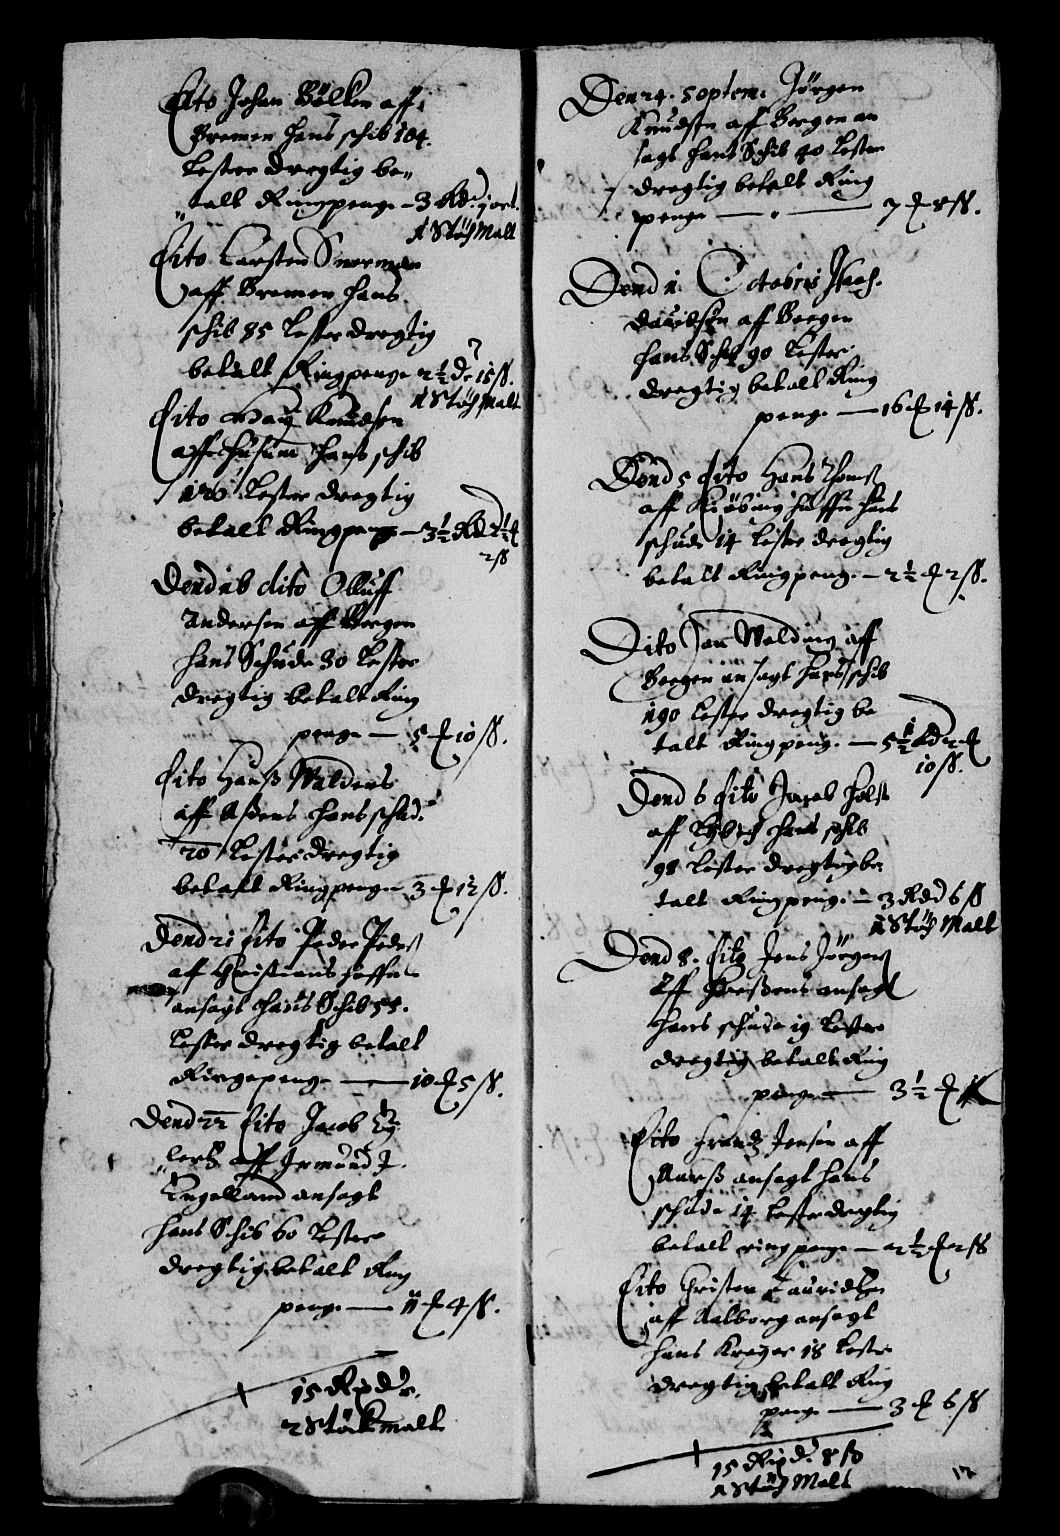 Dito Johan Bölken aff
Bremen hans schib 104.
Lester dregtig be-
talt Ringpenge - 3 Rd. 1 ort.
1 Stöch Malt
Dito Carsten Smerman
aff Bremen hans
schib 85 Lester dregtig
betalt Ringpenge 2½ d. 15 ß.
1 Stöch Malt
Dito Knudsen
aff Husum hans schib
120 Lester dregtig
betalt Ringpenge - 3½ Rd 2½ £
2 ß
Dend 16 dito Olluff
Andersen aff Bergen
hans Schude 30 Lester
dregtig betalt Ring
penge — 5 £ 10 ß.
Dito Hanß Walders
aff Aßens hans schud.
20 Lester dregtig
betalt Ringpenge 3 £ 12 ß.
Dend 21 dito Peder Peders
aff Christians haffn
ansagt hans Schib 55.
Lester dregtig betalt
Ringepenge — 10 £ 5 ß.
Dend 22 dito Jacob
aff Jermund J
Engelland ansagt
hans Schib 60 Lester
dregtig betalt Ring
penge — 11 £ 4 ß.
15 Rixdr.
2 Stöckmalt.
Den 24. Septem: Jörgen
Knudsen aff Bergen an
sagt hans Schib 40 Lester
dregtig betalt Ring
penge — 7 £ 8 ß.
Dend 1. Octobris
Davidsen aff Bergen
hans Schib 90 Lester
dregtig betalt Ring
penge — 16 £ 14 ß.
Dend 5 dito Hans Thoms
aff Kiöbing haffn hans
schude 14 Lester dregtig
betalt Ringpenge - 2½ £ 2 ß.
Dito Jan Welding aff
Bergen ansagt hans schib
190 Lester dregtig be
talt Ringpenge. — 5½ Rd 2 £
10 ß.
Dend 6 dito Jacob Holst
aff Lybech hans schib
98 Lester dregtig be
talt Ringpenge. - 3 Rdd 6 ß
1 Stöch Malt
Dend 8. dito Jens Jörgens
aff ansagt
hans schude 19 Lester
dregtig betalt Ring
penge — 3½ £
Dito Frandz Jensen aff
Aarß ansagt hans
schude 14 Lester dregtig
betalt ringpenge - 2½ £ 2 ß
Dito Christen Lauridtzen
aff Aalborg ansagt
hans Kreyer 18 Lester
dregtig betalt Ring
penge — 3 £ 6 ß
15 Rixd. 8 ß
1 Stöch Malt
12